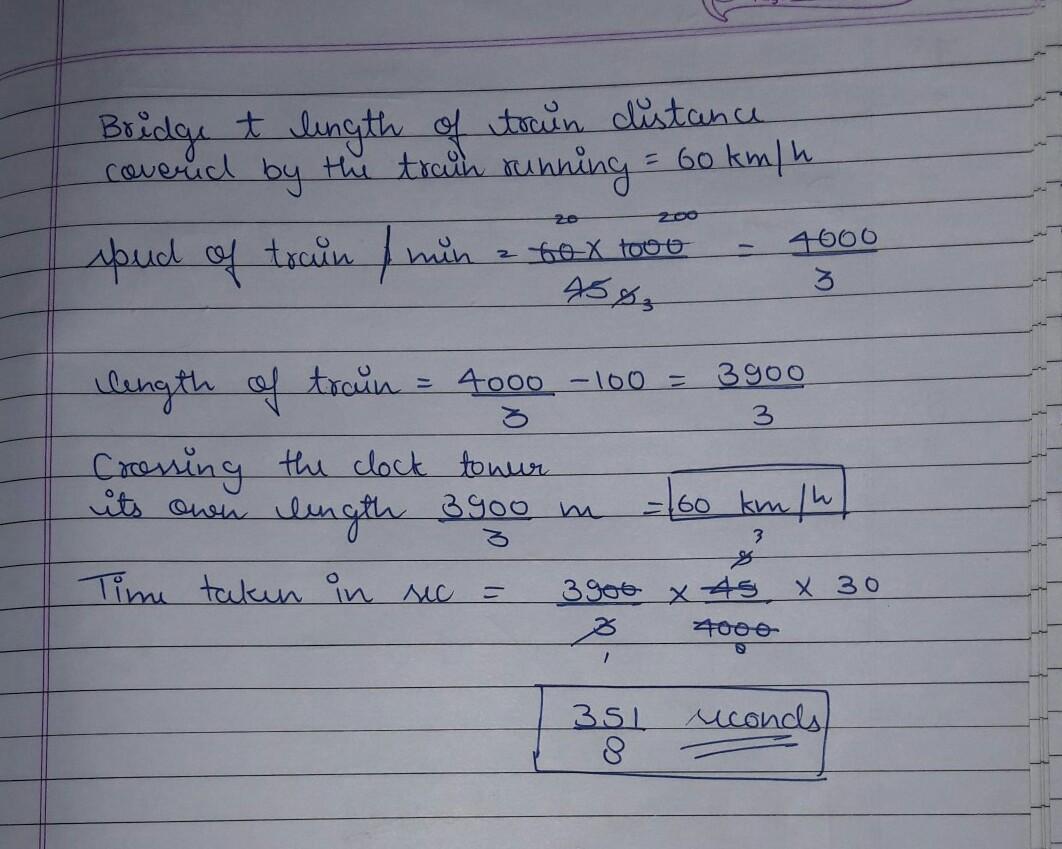 Bridge + length of train distance
covered by the train running = 60 km/h
speed of train / min = 60 × 1000 / 45 = 4000 / 3
20 200
9 3
length of train = 4000 / 3 - 100 = 3900 / 3
Crossing the clock tower
its own length 3900 / 3 m = 60 km/h
Time taken in sec = 3900 / 3 × 45 / 4000 × 30
3
9
1 8
351 / 8 seconds